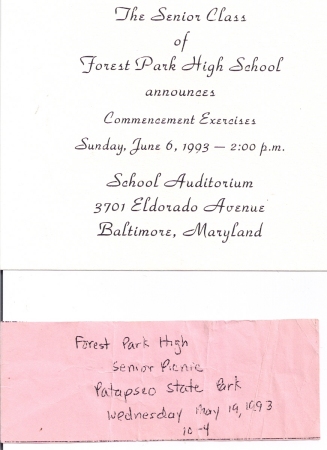 The Senior Class
of
Forest Park High School
announces
Commencement Exercises
Sunday, June 6, 1993 — 2:00 p.m.
School Auditorium
3701 Eldorado Avenue
Baltimore, Maryland
Forest Park High
Senior Picnic
Patapsco State Park
Wednesday May 19, 1993
10-4